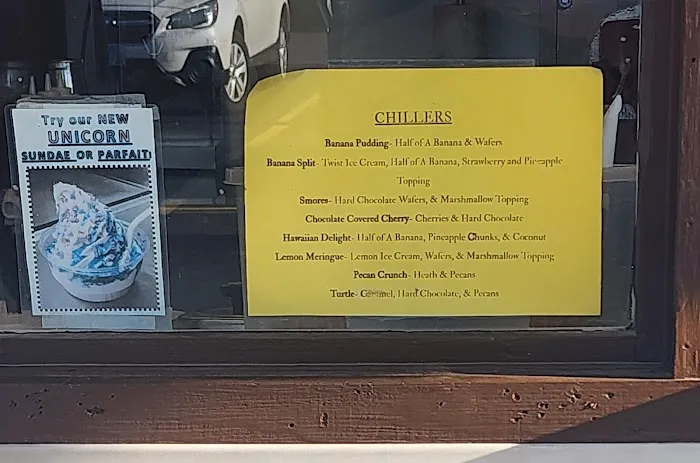 Try our NEW
UNICORN
SUNDAE OR PARFAIT!
CHILLERS
Banana Pudding- Half of A Banana & Wafers
Banana Split- Twist Ice Cream, Half of A Banana, Strawberry and Pineapple
Topping
Smores- Hard Chocolate Wafers, & Marshmallow Topping
Chocolate Covered Cherry- Cherries & Hard Chocolate
Hawaiian Delight- Half of A Banana, Pineapple Chunks, & Coconut
Lemon Meringue- Lemon Ice Cream, Wafers, & Marshmallow Topping
Pecan Crunch- Heath & Pecans
Turtle- Caramel, Hard Chocolate, & Pecans